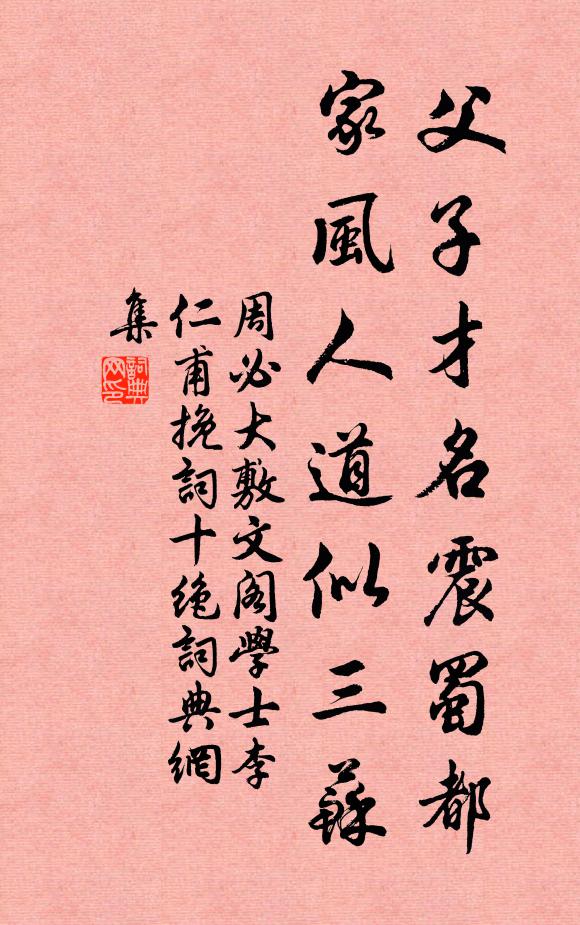 父子才名震蜀都
家風人道似三蘇
周必大敷文閣學士李
仁甫挽詞十絶詞典網
集
詞典
网印